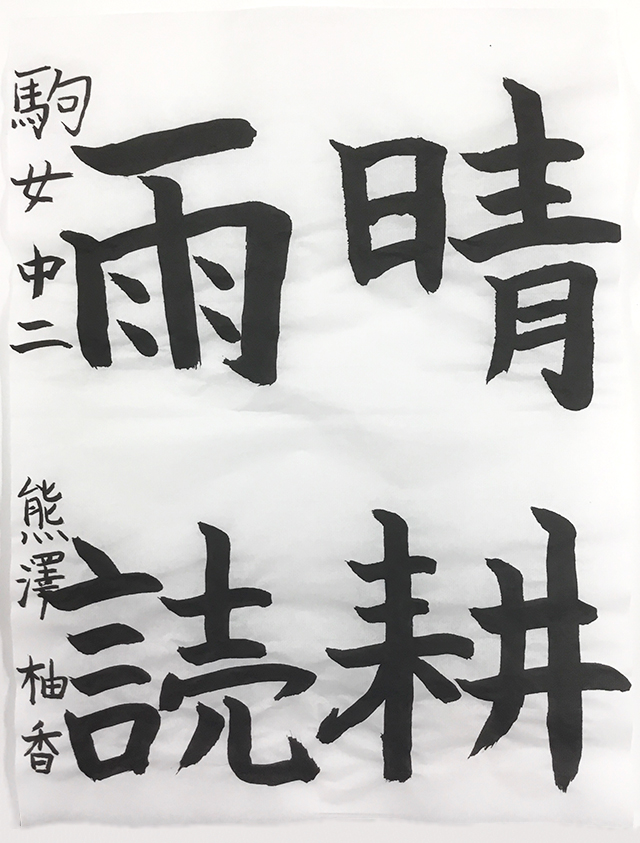 晴耕
雨読
駒女中二 熊澤柚香